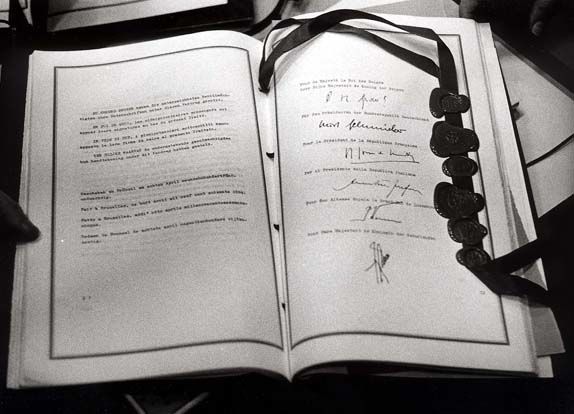 ZU URKUND DESSEN haben die unterzeichneten Bevollmäch-
tigten ihre Unterschriften unter diesen Vertrag gesetzt.
EN FOI DE QUOI, les plénipotentiaires soussignés ont
apposé leurs signatures au bas du présent Traité.
IN FEDE DI CHE, i plenipotenziari sottoscritti hanno
apposto le loro firme in calce al presente Trattato.
TEN BLIJKE WAARVAN de ondergetekende gevolmachtigden
hun handtekening onder dit Verdrag hebben gesteld.
Geschehen zu Brüssel am achten April neunzehnhundertfünf-
undsechzig.
Fait à Bruxelles, le huit avril mil neuf cent soixante-cinq.
Fatto a Bruxelles, addì otto aprile millenovecentosessanta-
cinque.
Gedaan te Brussel de achtste april negentienhonderd vijfen-
zestig.
Pour Sa Majesté le Roi des Belges
Voor Zijne Majesteit de Koning der Belgen
Für den Präsidenten der Bundesrepublik Deutschland
Pour le Président de la République Française
Per il Presidente della Repubblica Italiana
Pour Son Altesse Royale le Grand-Duc de Luxembourg
Voor Hare Majesteit de Koningin der Nederlanden